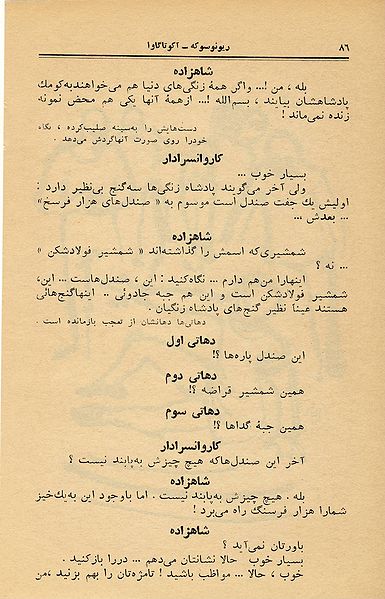 ۸۶ ریونوسوکه ــ آکوتاگاوا
شاهزاده
بله ، من !... واگر همهٔ زنگی‌های دنیا هم می‌خواهندبه‌کومك
پادشاهشان بیایند ، بسم‌الله !... ازهمهٔ آنها یکی هم محض نمونه
زنده نمی‌ماند !
دست‌هایش را به‌سینه صلیب‌کرده ، نگاه
خودرا روی صورت آنهاگردش می‌دهد .
کاروانسرادار
بسیار خوب ...
ولی آخر می‌گویند پادشاه زنگی‌ها سه‌گنج بی‌نظیر دارد :
اولیش یك جفت صندل است موسوم به « صندل‌های هزار فرسخ»
... بعدش ...
شاهزاده
شمشیری‌که اسمش را گذاشته‌اند « شمشیر فولادشکن »
... نه ؟
اینهارا من‌هم دارم ... نگاه‌کنید : این ، صندل‌هاست ... این،
شمشیر فولادشکن است و این هم جبه جادوئی .. اینهاگنج‌هائی
هستند عیناً نظیر گنج‌های پادشاه زنگیان .
دهاتی‌ها دهانشان از تعجب بازمانده است .
دهاتی اول
این صندل پاره‌ها ؟!
دهاتی دوم
همین شمشیر قراضه ؟!
دهاتی سوم
همین جبهٔ گداها ؟!
کاروانسرادار
آخر این صندل‌هاکه هیچ چیزش به‌پابند نیست ؟!
شاهزاده
بله . هیچ چیزش به‌پابند نیست . اما باوجود این به‌یك‌خیز
شمارا هزار فرسنگ راه می‌برد !
شاهزاده
باورتان نمی‌آید ؟
بسیار خوب حالا نشانتان می‌دهم ... دررا بازکنید .
خوب ، حالا ... مواظب باشید ! تامژه‌تان را بهم بزنید ،من